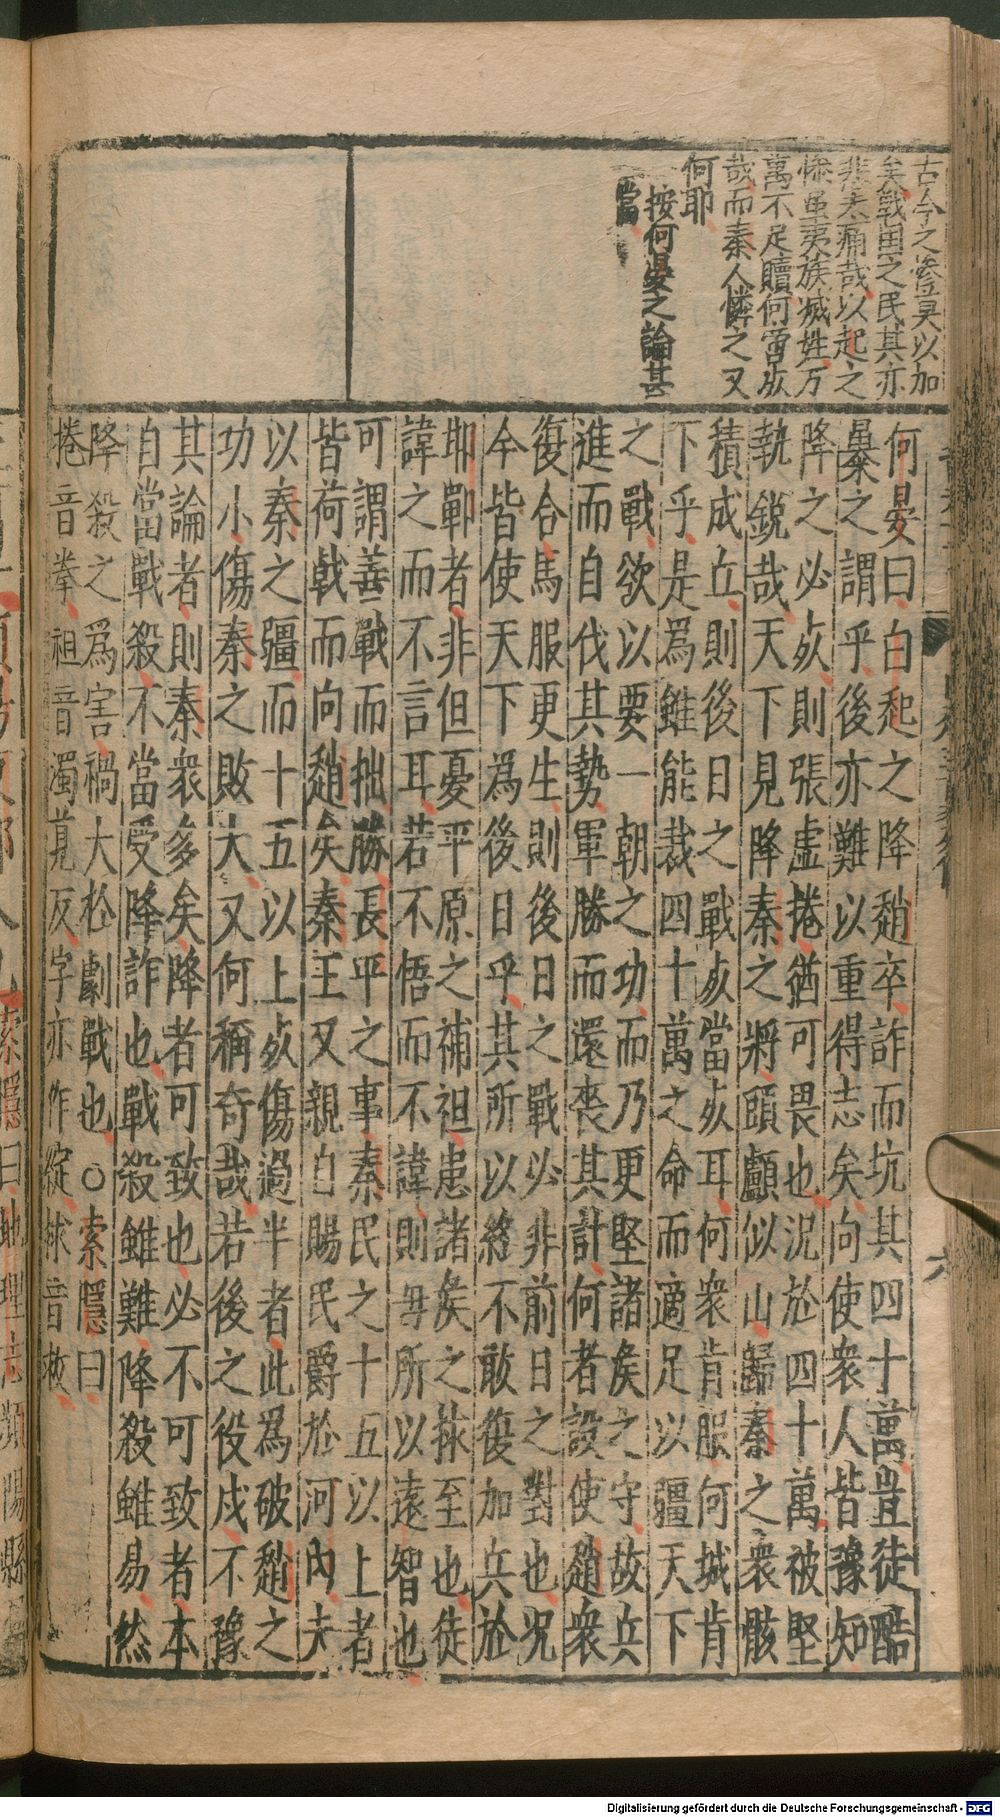 古今之慘莫以加
矣戰國之民其亦
悲夫痛哉以起之
慘虽夷族滅姓万
萬不足贖何啻𣦸
哉而秦人憐之又
何耶
按何晏之論甚
當
何晏曰白起之降趙卒詐而坑其四十萬豈徒酷
暴之謂乎後亦難以重得志矣向使衆人皆豫知
降之必𣦸則張虛捲猶可畏也況於四十萬被堅
執銳哉天下見降秦之將頭顱似山歸秦之衆骸
積成丘則後日之戰𣦸當𣦸耳何衆肯服何城肯
下乎是為雖能裁四十萬之命而適足以彊天下
之戰欲以要一朝之功而乃更堅諸矦之守故兵
進而自伐其勢軍勝而還喪其計何者設使趙衆
復合馬服更生則後日之戰必非前日之對也況
今皆使天下為後日乎其所以終不敢復加兵於
耶鄲者非但憂平原之補袒患諸矦之捄至也徒
諱之而不言耳若不悟而不諱則毋所以遠智也
可謂善戰而拙勝長平之事秦民之十五以上者
皆荷戟而向趙矣秦王又親自賜民爵於河內夫
以秦之彊而十五以上𣦸傷過半者此為破趙之
功小傷秦之敗大又何稱奇哉若後之役戍不豫
其論者則秦衆多矣降者可致也必不可致者本
自當戰殺不當受降詐也戰殺雖難降殺雖易然
降殺之為害禍大於劇戰也○索隱曰
捲音拳袒音濁莧反字亦作綻捄音救
六